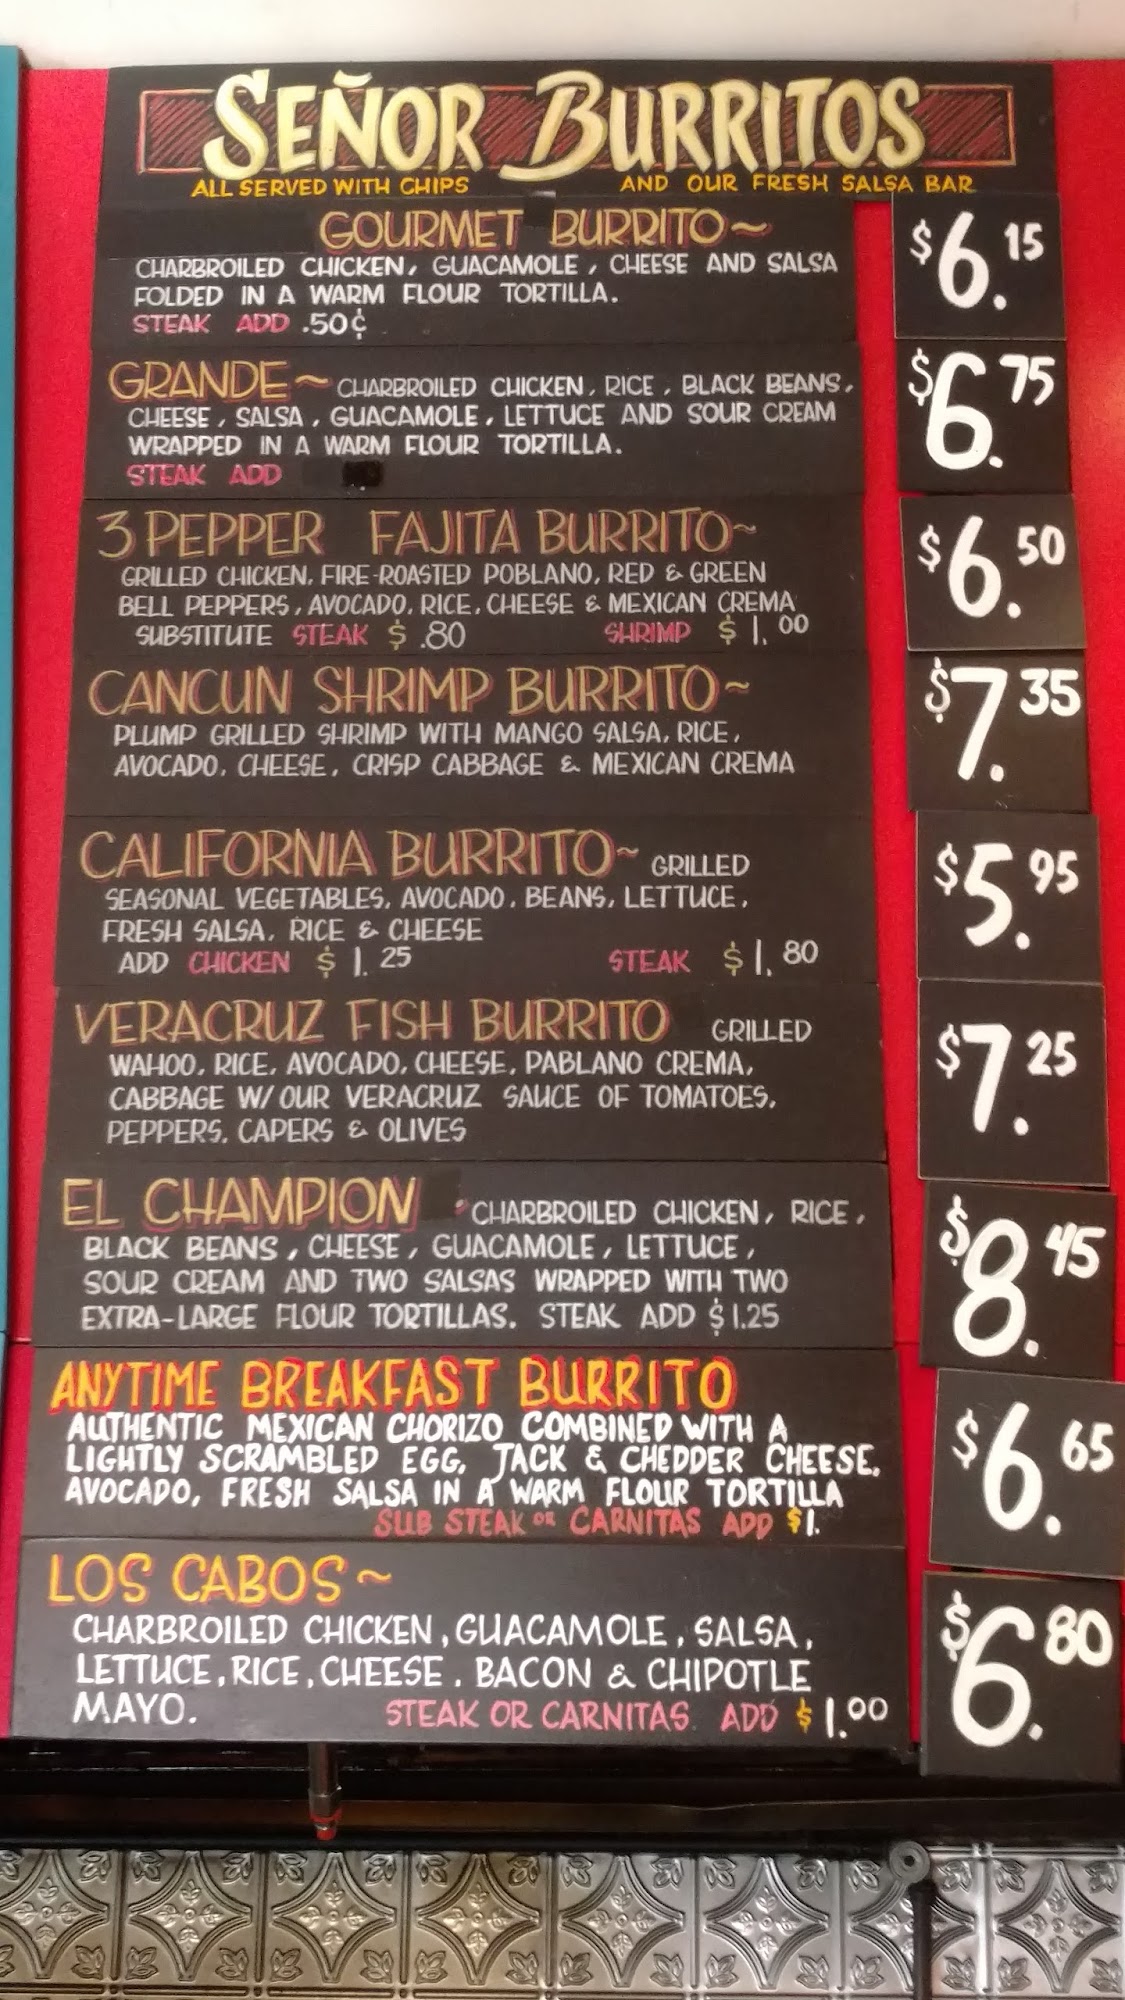 SEÑOR BURRITOS
ALL SERVED WITH CHIPS AND OUR FRESH SALSA BAR
GOURMET BURRITO~ $6.15
CHARBROILED CHICKEN, GUACAMOLE, CHEESE AND SALSA
FOLDED IN A WARM FLOUR TORTILLA.
STEAK ADD .50¢
GRANDE~ CHARBROILED CHICKEN, RICE, BLACK BEANS, $6.75
CHEESE, SALSA, GUACAMOLE, LETTUCE AND SOUR CREAM
WRAPPED IN A WARM FLOUR TORTILLA.
STEAK ADD
3 PEPPER FAJITA BURRITO~ $6.50
GRILLED CHICKEN, FIRE-ROASTED POBLANO, RED & GREEN
BELL PEPPERS, AVOCADO, RICE, CHEESE & MEXICAN CREMA
SUBSTITUTE STEAK $.80 SHRIMP $1.00
CANCUN SHRIMP BURRITO~ $7.35
PLUMP GRILLED SHRIMP WITH MANGO SALSA, RICE,
AVOCADO, CHEESE, CRISP CABBAGE & MEXICAN CREMA
CALIFORNIA BURRITO~ GRILLED $5.95
SEASONAL VEGETABLES, AVOCADO, BEANS, LETTUCE,
FRESH SALSA, RICE & CHEESE
ADD CHICKEN $1.25 STEAK $1.80
VERACRUZ FISH BURRITO GRILLED $7.25
WAHOO, RICE, AVOCADO, CHEESE, PABLANO CREMA,
CABBAGE W/ OUR VERACRUZ SAUCE OF TOMATOES,
PEPPERS, CAPERS & OLIVES
EL CHAMPION CHARBROILED CHICKEN, RICE, $8.45
BLACK BEANS, CHEESE, GUACAMOLE, LETTUCE,
SOUR CREAM AND TWO SALSAS WRAPPED WITH TWO
EXTRA-LARGE FLOUR TORTILLAS. STEAK ADD $1.25
ANYTIME BREAKFAST BURRITO $6.65
AUTHENTIC MEXICAN CHORIZO COMBINED WITH A
LIGHTLY SCRAMBLED EGG, JACK & CHEDDER CHEESE,
AVOCADO, FRESH SALSA IN A WARM FLOUR TORTILLA
SUB STEAK OR CARNITAS ADD $1.
LOS CABOS~ $6.80
CHARBROILED CHICKEN, GUACAMOLE, SALSA,
LETTUCE, RICE, CHEESE, BACON & CHIPOTLE
MAYO. STEAK OR CARNITAS ADD $1.00